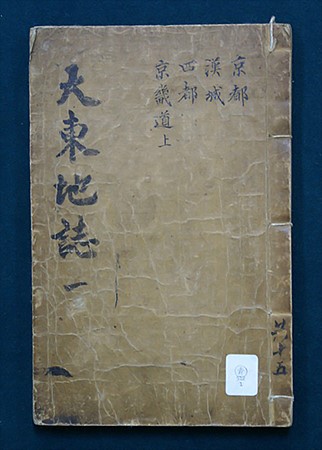 京都
漢城
四都
京畿道上
大東地誌 一
共十五